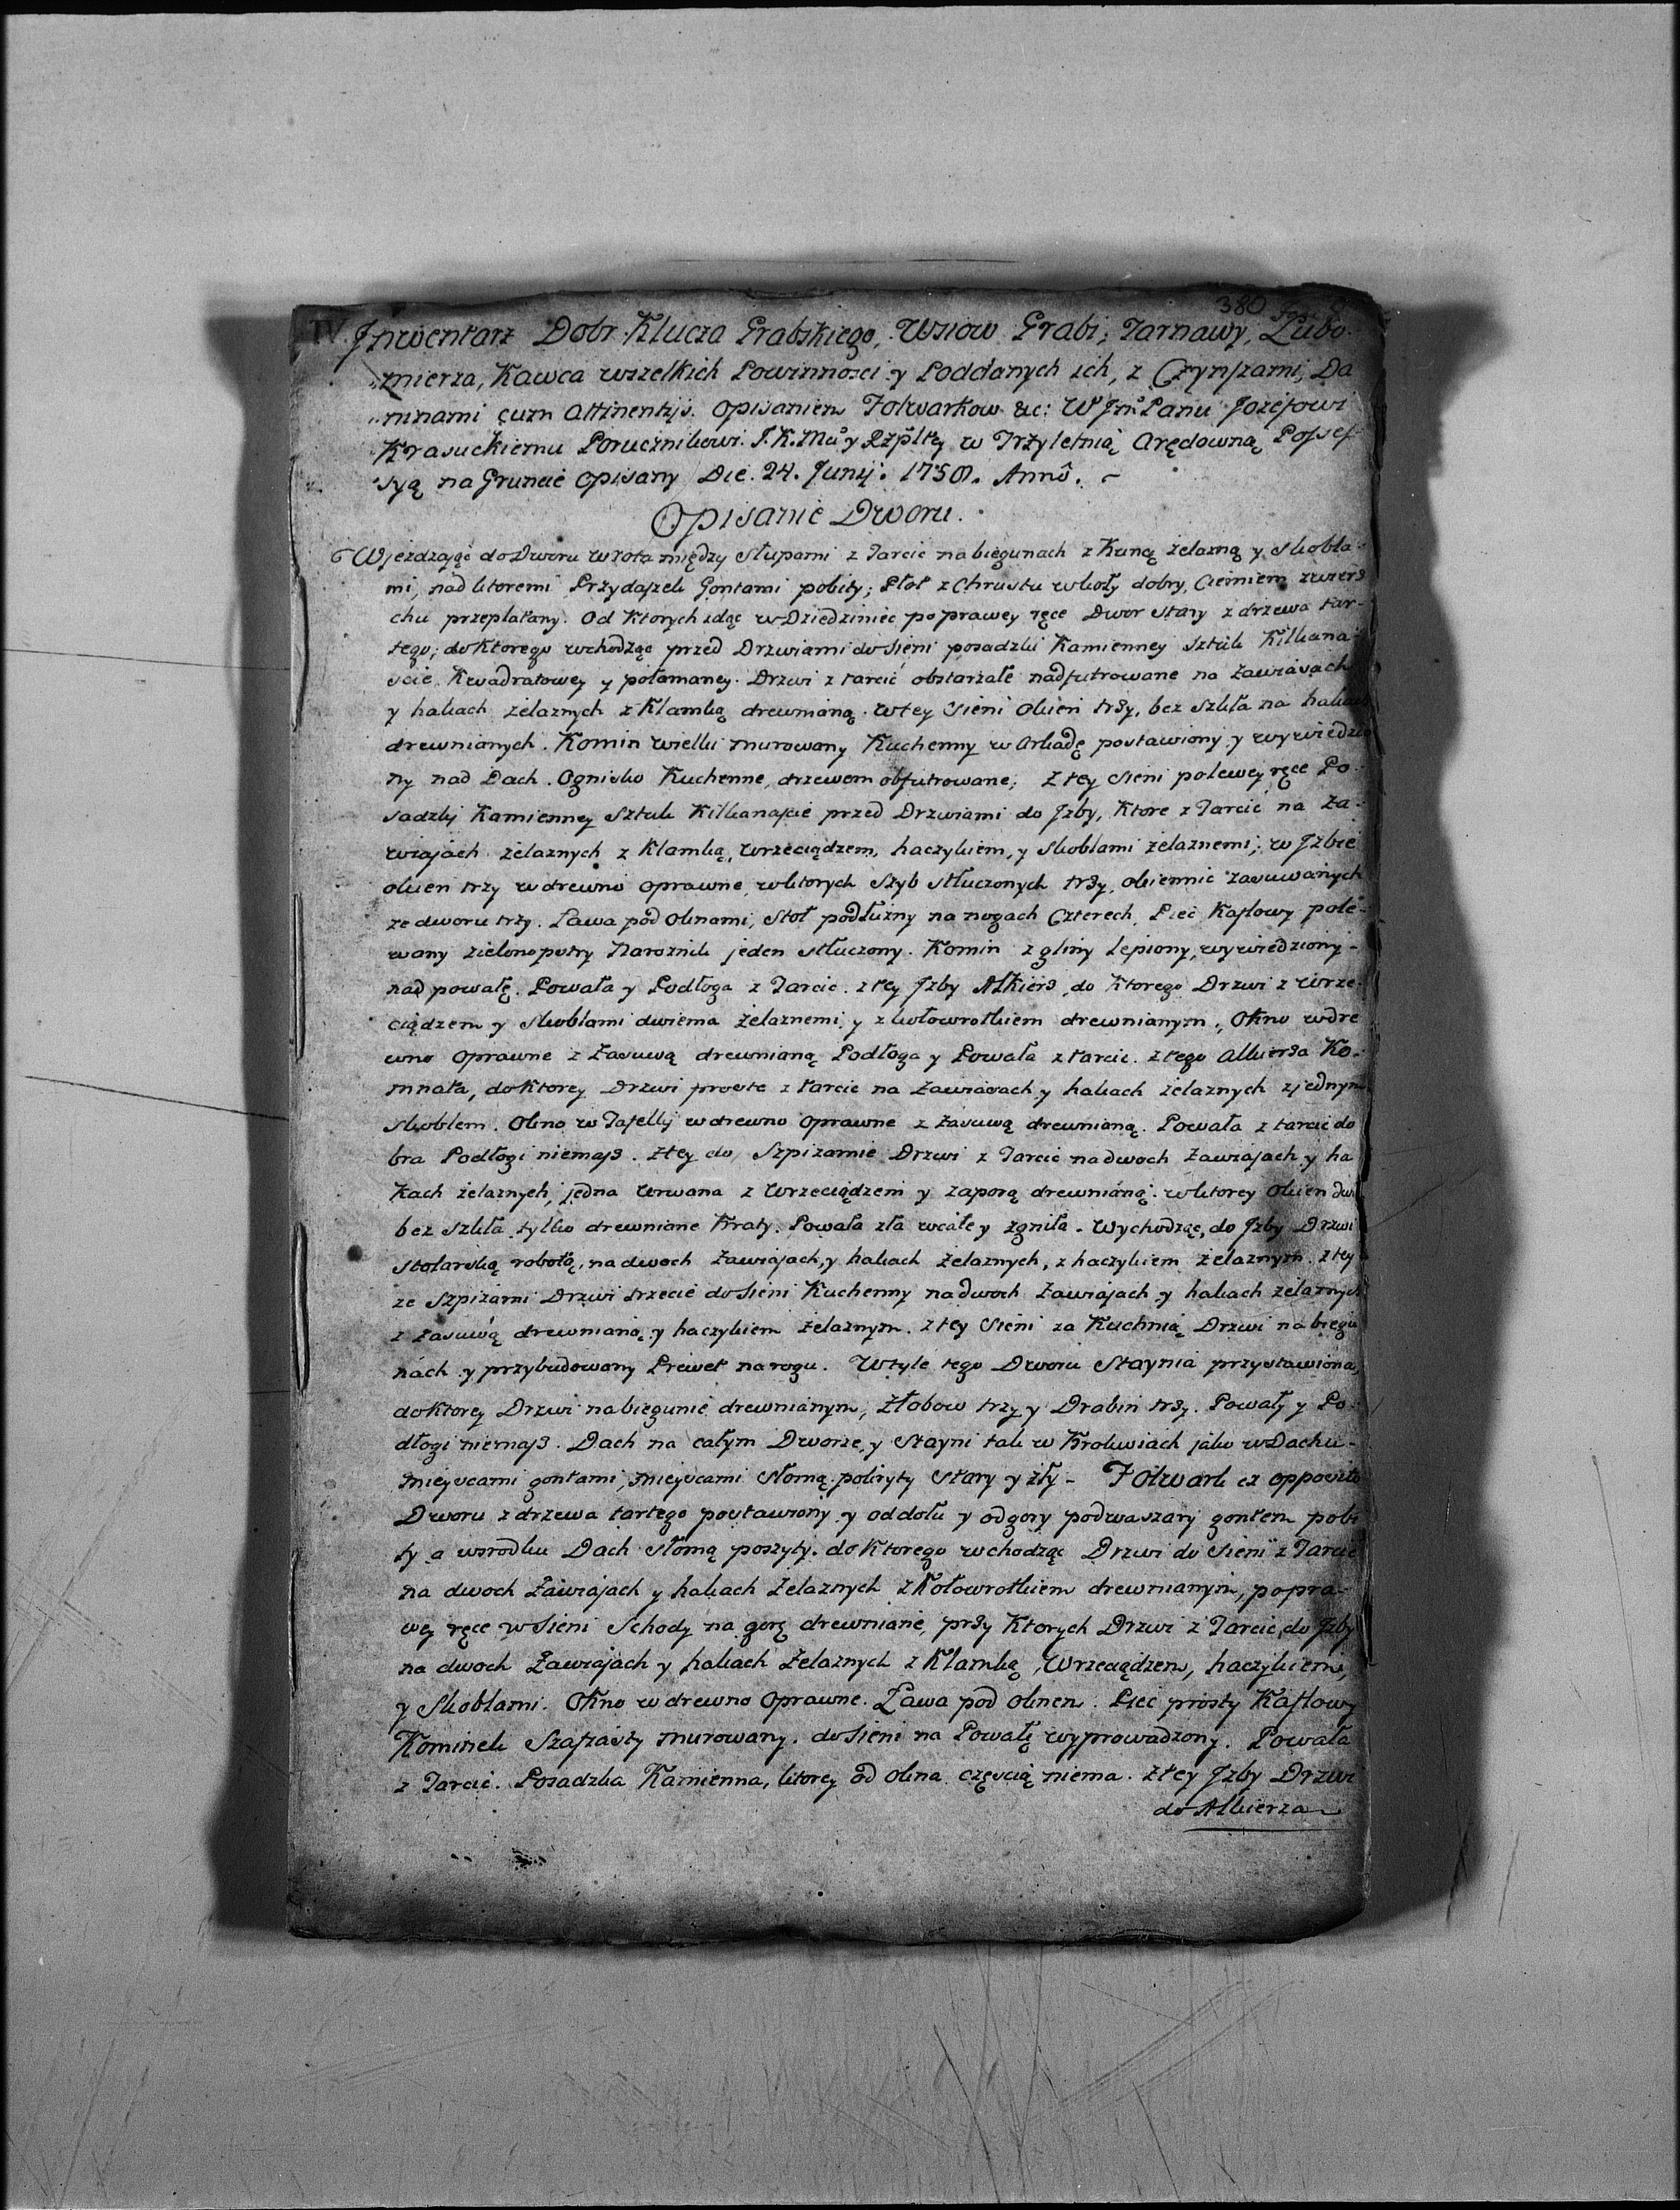 380
IV. Inwentarz Dobr Klucza Grabskiego, Wsiow Grabi, Tarnawy, Lubo-
mierza, Kawca wszelkich Powinnosci y Poddanych ich, z Czynszami, Da
ninami cum Attinentijs. opisaniem Folwarkow &c: W Jm Panu Jozefowi
Krasuckiemu Porucznikowi J. K. Mci y Rzpltey w Trzyletnią Arędowną Posses
syą na Gruncie opisany Die 24. Junij. 1758. Anno.
Opisanie Dworu.
Wjezdzając do Dworu wrota między słupami z Tarcic na biegunach z Kuną żelazną y Skobla-
mi, nad ktoremi Przydaszek Gontami pobity; Płot z Chrustu wkoły dobry, Cierniem zwierz
chu przeplatany. Od Ktorych idąc w Dziedziniec po prawey ręce Dwor stary z drzewa tar-
tego; do Ktorego wchodząc przed Drzwiami do Sieni posadzki Kamienney sztuk Kilkana-
scie Kwadratowey y połamaney. Drzwi z tarcic obstarzałe nadfutrowane na Zawiasach
y hakach żelaznych z Klamką drewnianą. w tey Sieni Okien trzy, bez szkła na hakach
drewnianych. Komin wielki murowany Kuchenny w Arkadę postawiony y wywiedzio
ny nad Dach. Ognisko Kuchenne, drzewem obfutrowane; z tey Sieni po lewey ręce Po-
sadzki Kamienney sztuk Kilkanascie przed Drzwiami do Jzby, Ktore z Tarcic na Za-
wiasach żelaznych z Klamką, Wrzeciądzem, haczykiem, y Skoblami żelaznemi; w Jzbie
okien trzy w drewno oprawne, w ktorych szyb stłuczonych trzy, okiennic zasuwanych
ze dworu trzy. Ława pod Oknami, Stoł podłużny na nogach Czterech. Piec Kaflowy pole-
wany zielonopstry Naroznik jeden stłuczony. Komin z gliny lepiony, wywiedziony-
nad powałę. Powała y Podłoga z Tarcic. z tey Jzby Alkierz, do Ktorego Drzwi z Wrze-
ciądzem y Skoblami dwiema żelaznemi, y z kołowrotkiem drewnianym, Okno w dre
wno oprawne z Zasuwą drewnianą Podłoga y Powała z tarcic. z tego Alkierza Ko-
mnata, do Ktorey Drzwi proste z tarcic na Zawiasach y hakach żelaznych z jednym
Skoblem. Okno w Tafelki w drewno oprawne z Zasuwą drewnianą. Powała z tarcic do
bra Podłogi niemasz. z tey do Szpizarnie Drzwi z Tarcic na dwoch Zawiasach y ha
kach żelaznych, jedna Urwana z Wrzeciądzem y zaporą drewnianą. w ktorey Okien dwie
bez szkła tylko drewniane Kraty. Powała zła wcale y zgniła. Wychodząc, do Jzby Drzwi
stolarską robotą, na dwoch Zawiasach, y hakach żelaznych, z haczykiem żelaznym. z tey
ze Szpizarni Drzwi trzecie do Sieni Kuchenny na dwoch Zawiasach y hakach żelaznych
z Zasuwą drewnianą y haczykiem żelaznym. z tey Sieni za Kuchnią Drzwi na biegu
nach y przybudowany Prewet na rogu. W tyle tego Dworu Staynia przystawiona,
do Ktorey Drzwi na biegunie drewnianym, Złobow trzy y Drabin trzy. Powały y Po-
dłogi niemasz. Dach na całym Dworze, y Stayni tak w Krokwiach jako w Dachu-
mieyscami gontami, mieyscami słomą pokryty stary y zły - Folwark ex opposito
Dworu z drzewa tartego postawiony y od dołu y od gory podwaszary gontem pobi
ty a wsrodku Dach słomą poszyty. do Ktorego wchodząc Drzwi do Sieni z Tarcic
na dwoch Zawiasach y hakach żelaznych z Kołowrotkiem drewnianym, po pra-
wey ręce w Sieni Schody na gorę drewniane, przy Ktorych Drzwi z Tarcic do Jzby
na dwoch Zawiasach y hakach żelaznych z Klamką, Wrzeciądzem, haczykiem,
y Skoblami. Okno w drewno oprawne. Ława pod oknem. Piec prosty Kaflowy
Kominek Szafiasty murowany. do Sieni na Powałę wyprowadzony. Powała
z Tarcic. Posadzka Kamienna, ktorey od okna częscią niema. z tey Jzby Drzwi
do Alkierza